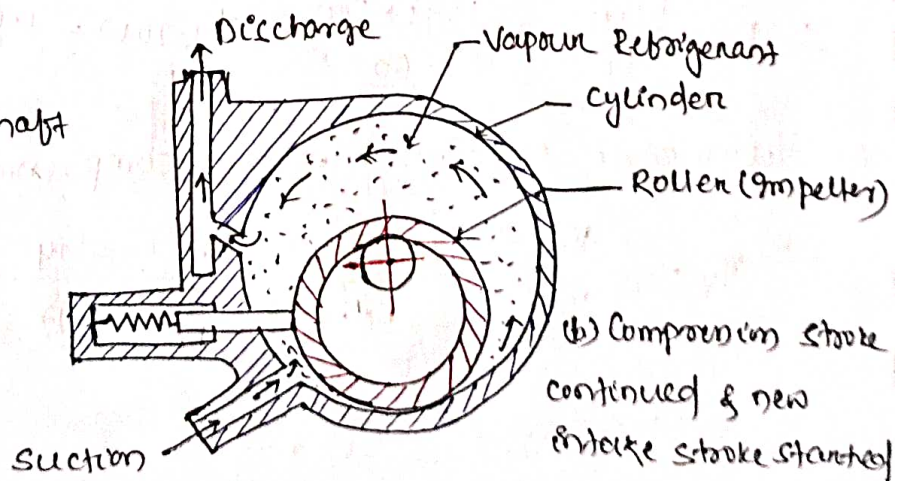 Discharge
Vapour Refrigerant
Cylinder
haft
Roller (Impeller)
(b) Compression stroke
continued & new
intake stroke started
Suction